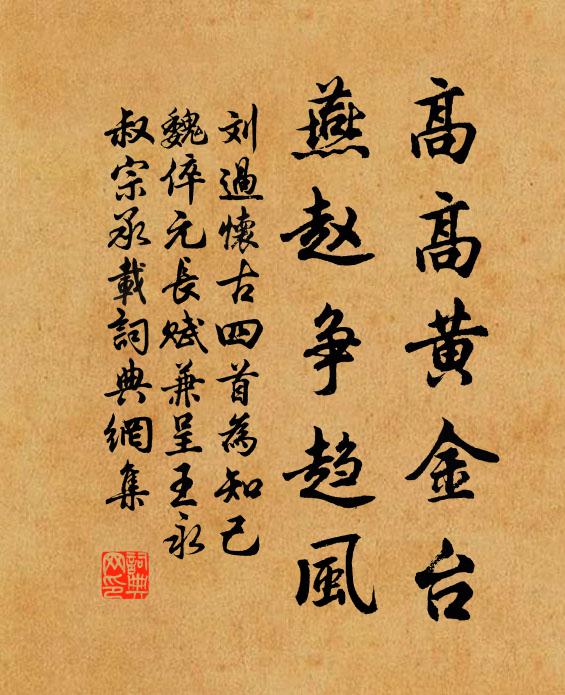 高高黄金台
燕赵争趋風
刘過懷古四首為知己
魏倅元長賦兼呈王永
叔宗丞載詞典網集
詞典网印